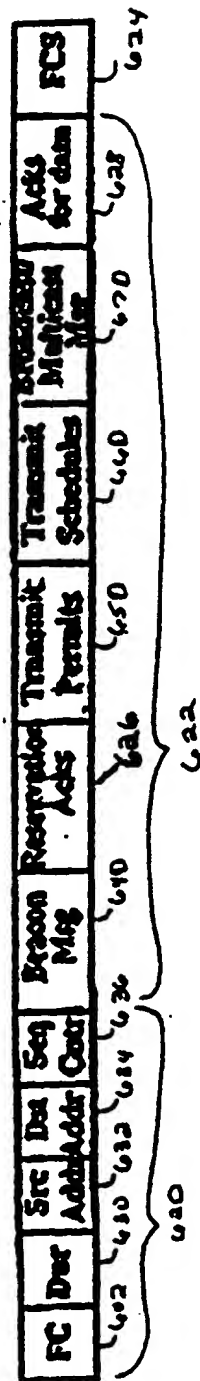 FC
Dur
Src
Addr
Dst
Addr
Seq
Contr
Beacon
Msg
Reservation
Acks
Transmit
Permits
Transmit
Schedules
Broadcast/
Multicast
Msg
Acks
for data
FCS
602
630
632
634
636
640
626
650
660
670
628
624
620
622